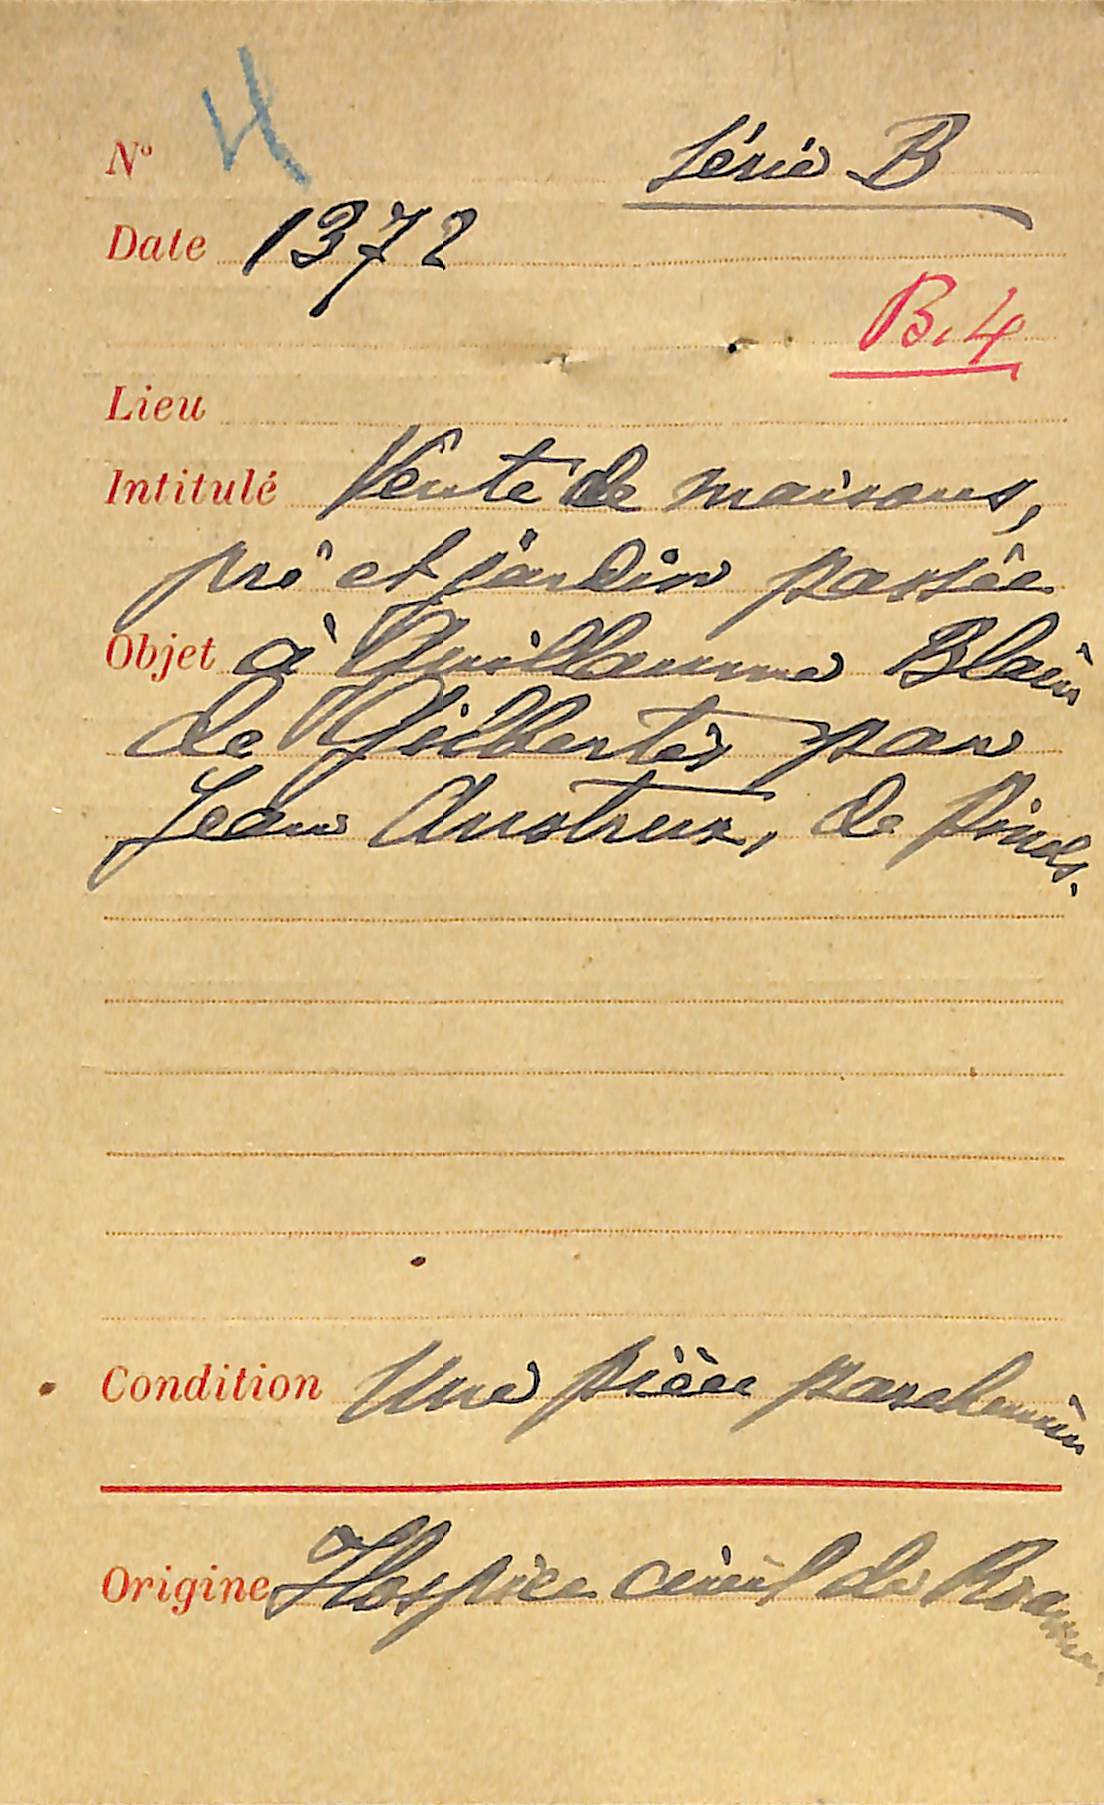 N° 4 Série B
Date 1372
B. 4
Lieu
Intitulé Vente de maisons,
pré et jardin passée
Objet à Guillaume Blain
de Gilbertès par
Jean Austreux, de Pinols.
Condition Une pièce parchemin
Origine Hospice civil de Roanne